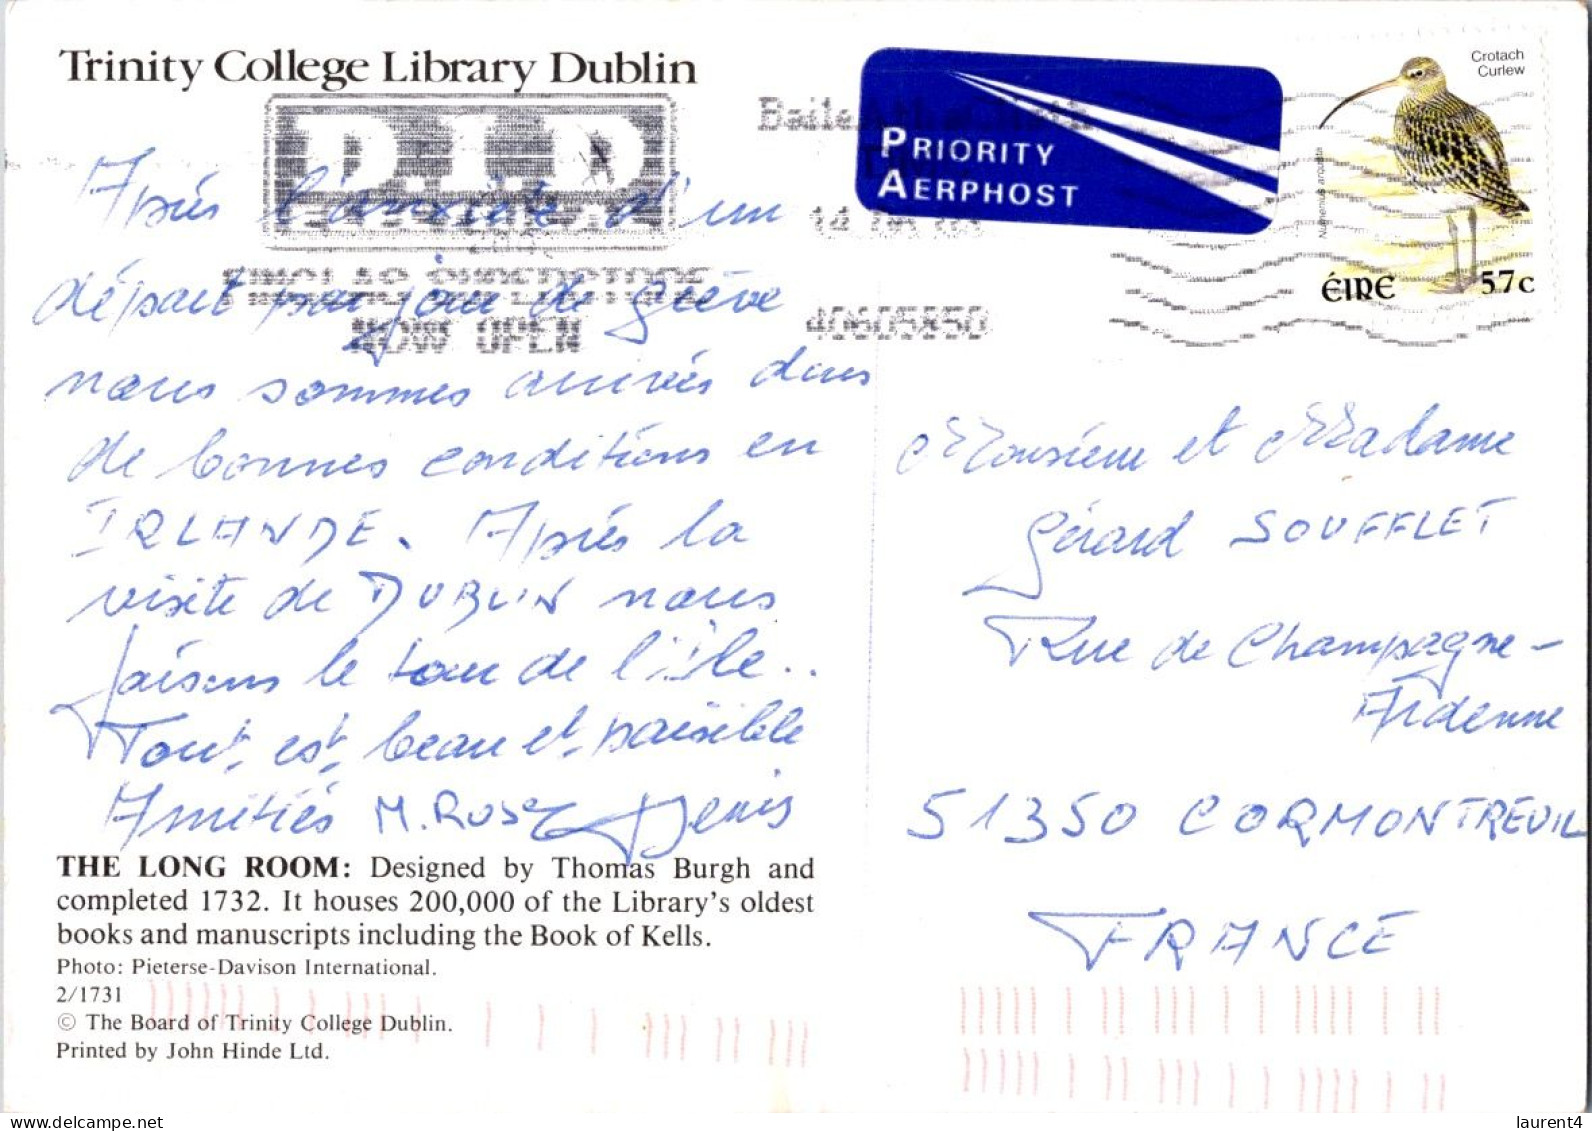 Trinity College Library Dublin
D.I.D
NOW OPEN
Baile
40605850
PRIORITY
AERPHOST
Crotach
Curlew
Numenius arquata
ÉIRE 57c
Après l'anxiété d'un
départ par jour de grève
nous sommes arrivés dans
de bonnes conditions en
IRLANDE. Après la
visite de DUBLIN nous
faisons le tour de l'île..
Tout est beau et paisible
Amitiés M. Rose Denis
Monsieur et Madame
Gérard SOUFFLET
Rue de Champagne-
Ardenne
51350 CORMONTREUIL
FRANCE
THE LONG ROOM: Designed by Thomas Burgh and
completed 1732. It houses 200,000 of the Library's oldest
books and manuscripts including the Book of Kells.
Photo: Pieterse-Davison International.
2/1731
© The Board of Trinity College Dublin.
Printed by John Hinde Ltd.
laurent4